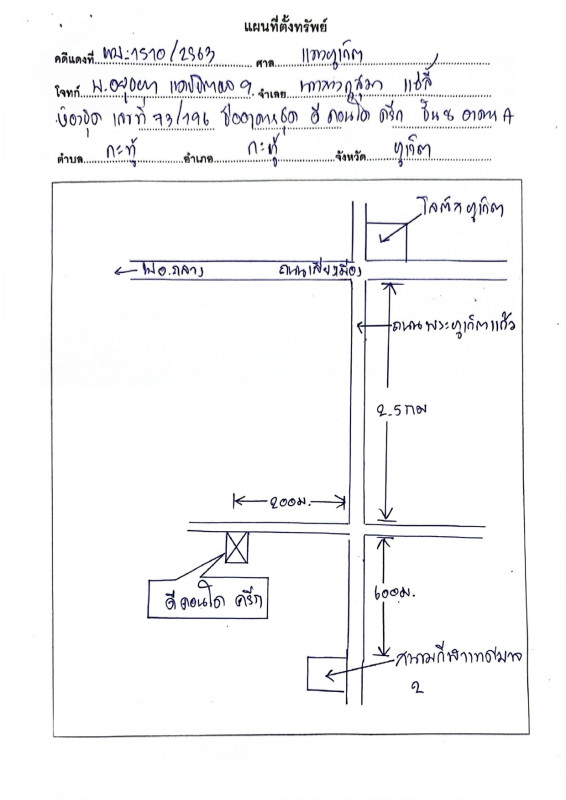 แผนที่ตั้งทรัพย์
คดีแดงที่ ผบ.1510/2563 ศาล แขวงภูเก็ต
โจทก์ บ.อยุธยา แคปปิตอล ฯ จำเลย นางสาวกุสุมา แซ่ลี้
ห้องชุด เลขที่ 73/196 ชื่ออาคารชุด ดี คอนโด ครีก ชั้น 8 อาคาร A
ตำบล กะทู้ อำเภอ กะทู้ จังหวัด ภูเก็ต
โลตัส ภูเก็ต
ถนนเลี่ยงเมือง
ถนนพระภูเก็ตแก้ว
2.5 กม
200ม.
ดีคอนโด ครีก
600ม.
สนามกีฬาเทศบาล
2